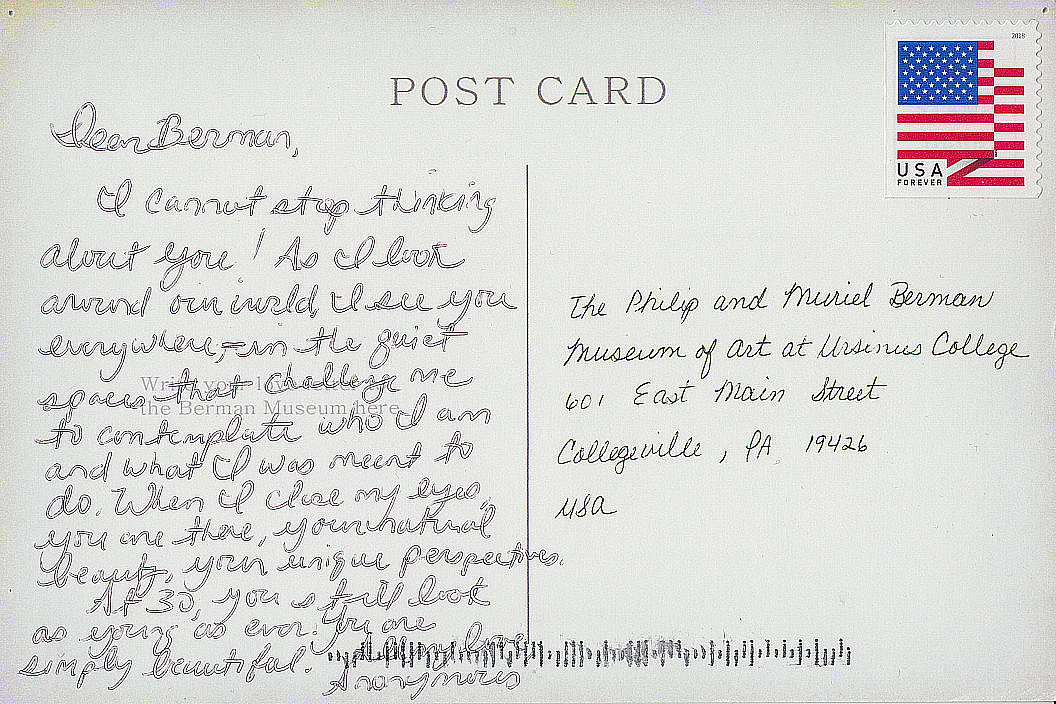 POST CARD
2018
USA
FOREVER
Dear Berman,
I cannot stop thinking
about you! As I look
around our world, I see you
everywhere, in the quiet
spaces that challenge me
to contemplate who I am
and what I was meant to
do. When I close my eyes,
you are there, your natural
beauty, your unique perspectives.
At 30, you still look
as young as ever. You are
simply beautiful. All my love
Anonymous
Write your love
the Berman Museum here
The Philip and Muriel Berman
Museum of Art at Ursinus College
601 East Main Street
Collegeville, PA 19426
USA